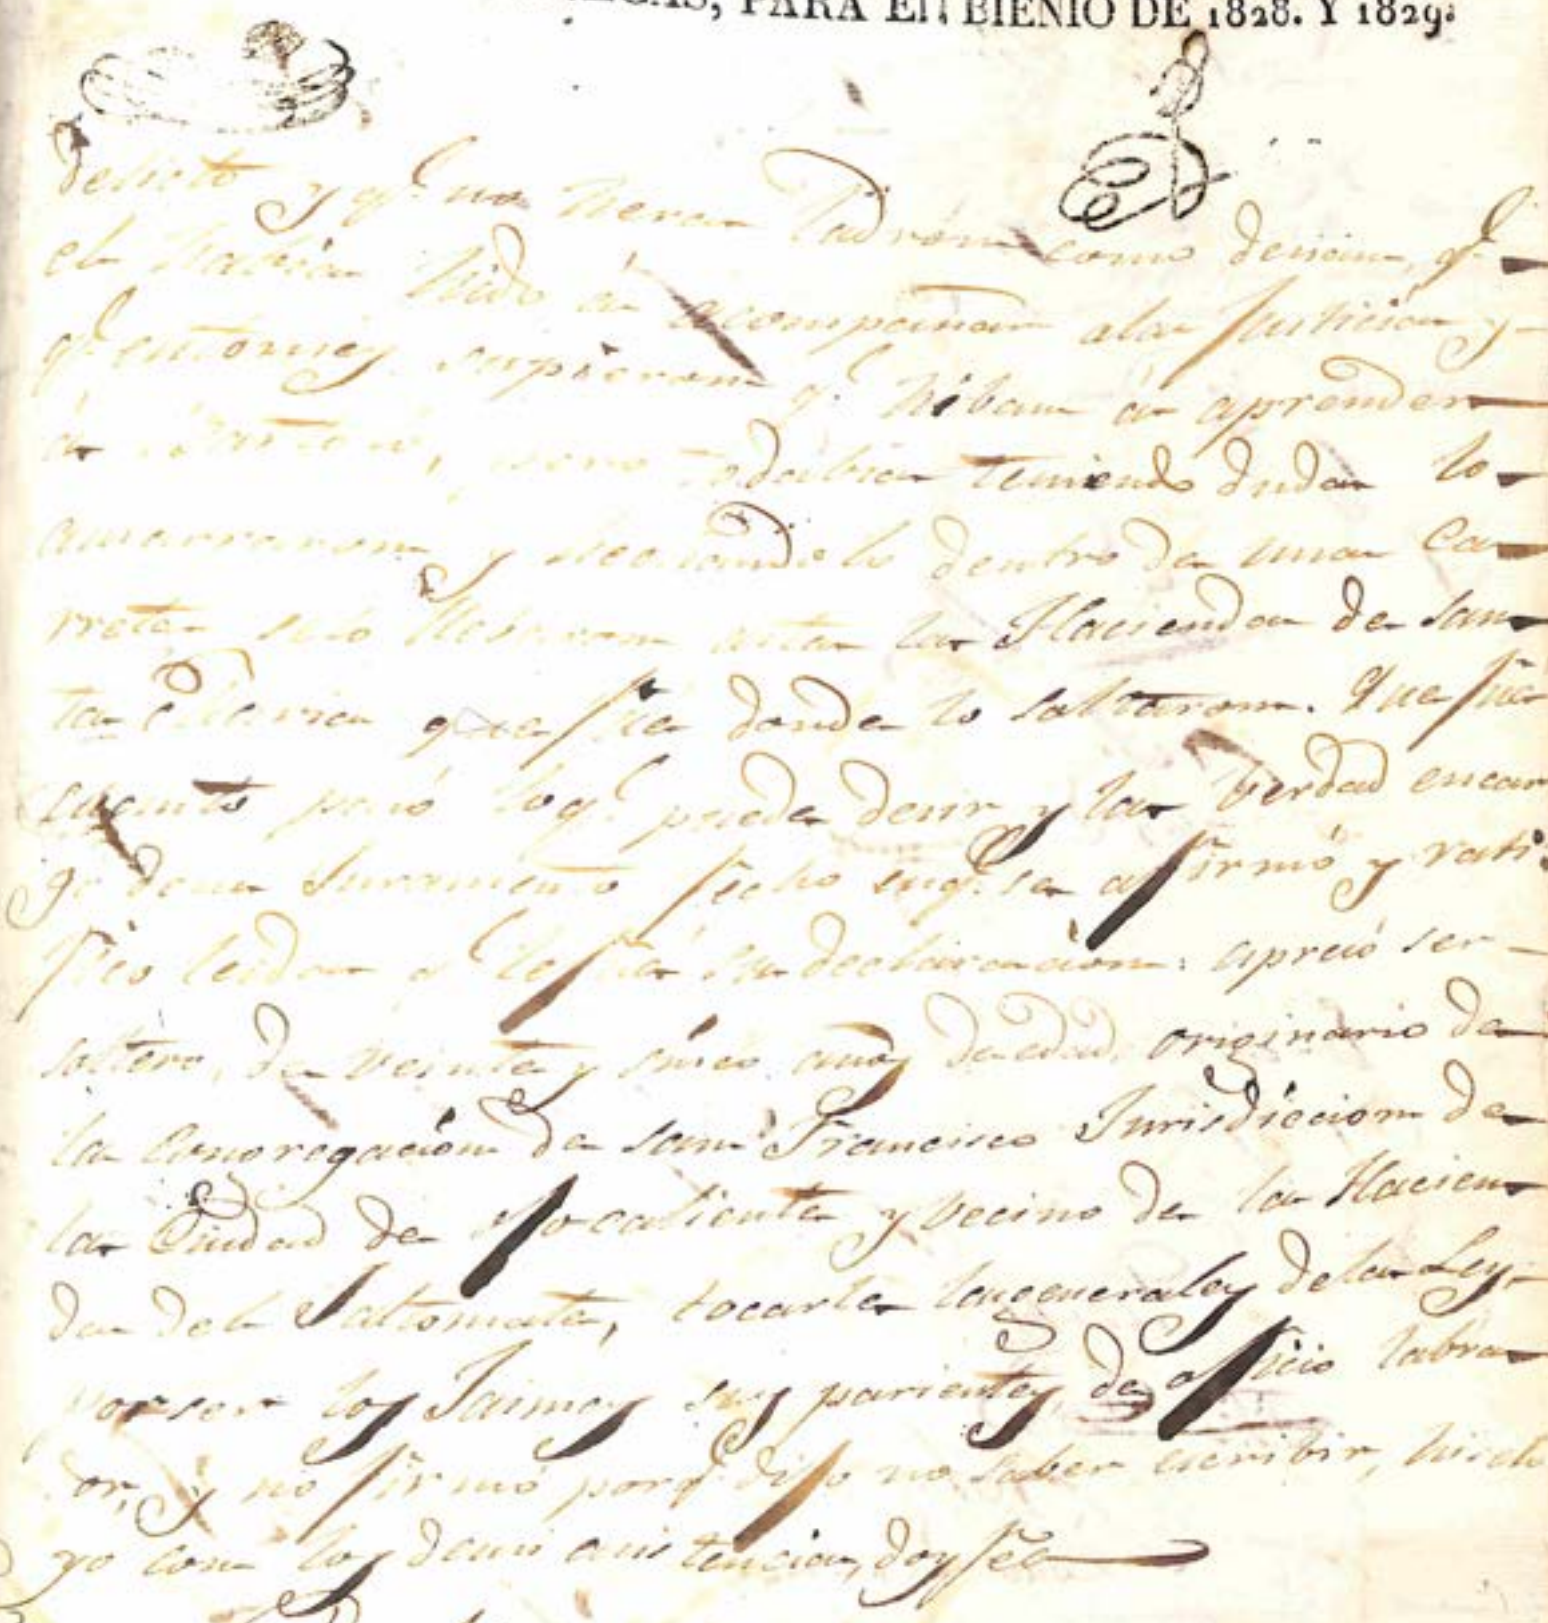 EGAS, PARA EL BIENIO DE 1828. Y 1829.
delicto y q.e no heran Ladron como decian, q.e
el habia hido á acompañar ala Justicia y
q.e entonces supieron q.e hiban á aprender
á pero todabia teniendo duda lo
amarraron y dentro de una Ca
rreta se lo llebaron asta la Hacienda de San
ta Maria que fue donde lo soltaron. Que fue
cuanto pasó loq.e puede decir y la verdad encar
go desu Juramento fecho enq.e se afirmó y rati
fico leida q.e le fué su declaracion: apreció ser
soltero, de veinte y sinco años de edad, originario de
la Congregación de san Francisco Jurisdiccion de
la Ciudad de Ojocaliente y vecino de la Hacien
da del Saltomate, tocarle lasgenerales dela Ley
porser los Jaimes sus parientes, de oficio labra
or, y no firmó porq.e dijo no saber escribir, hicelo
yo con los demi asistencia, doy fée